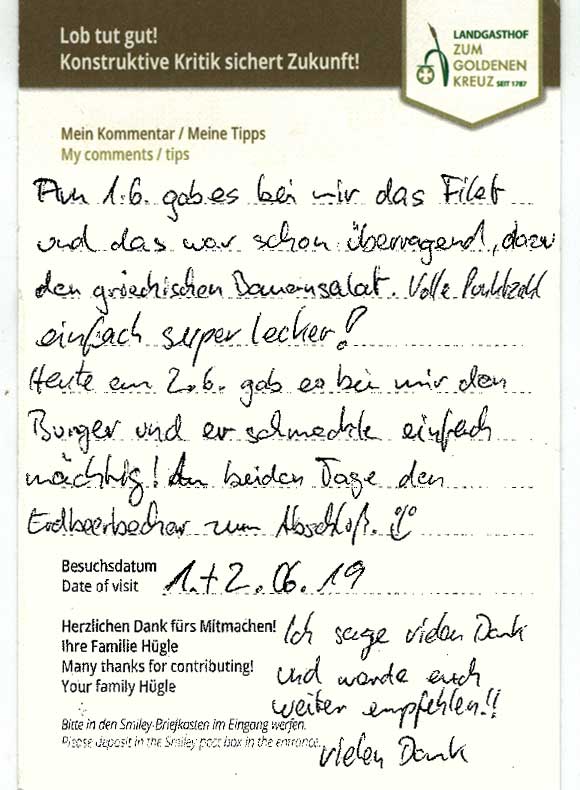 Lob tut gut!
Konstruktive Kritik sichert Zukunft!
LANDGASTHOF
ZUM
GOLDENEN
KREUZ SEIT 1787
Mein Kommentar / Meine Tipps
My comments / tips
Am 1.6. gab es bei mir das Filet
und das war schon überragend, dazu
den griechischen Bauernsalat. Volle Punktzahl
einfach super lecker!
Heute am 2.6. gab es bei mir den
Burger und er schmeckte einfach
mächtig! An beiden Tage den
Erdbeerbecher zum Abschluß.
Besuchsdatum
Date of visit
1.+2.06.19
Herzlichen Dank fürs Mitmachen!
Ihre Familie Hügle
Many thanks for contributing!
Your family Hügle
Ich sage vielen Dank
und werde euch
weiter empfehlen!!
vielen Dank
Bitte in den Smiley-Briefkasten im Eingang werfen.
Please deposit in the Smiley post box in the entrance.